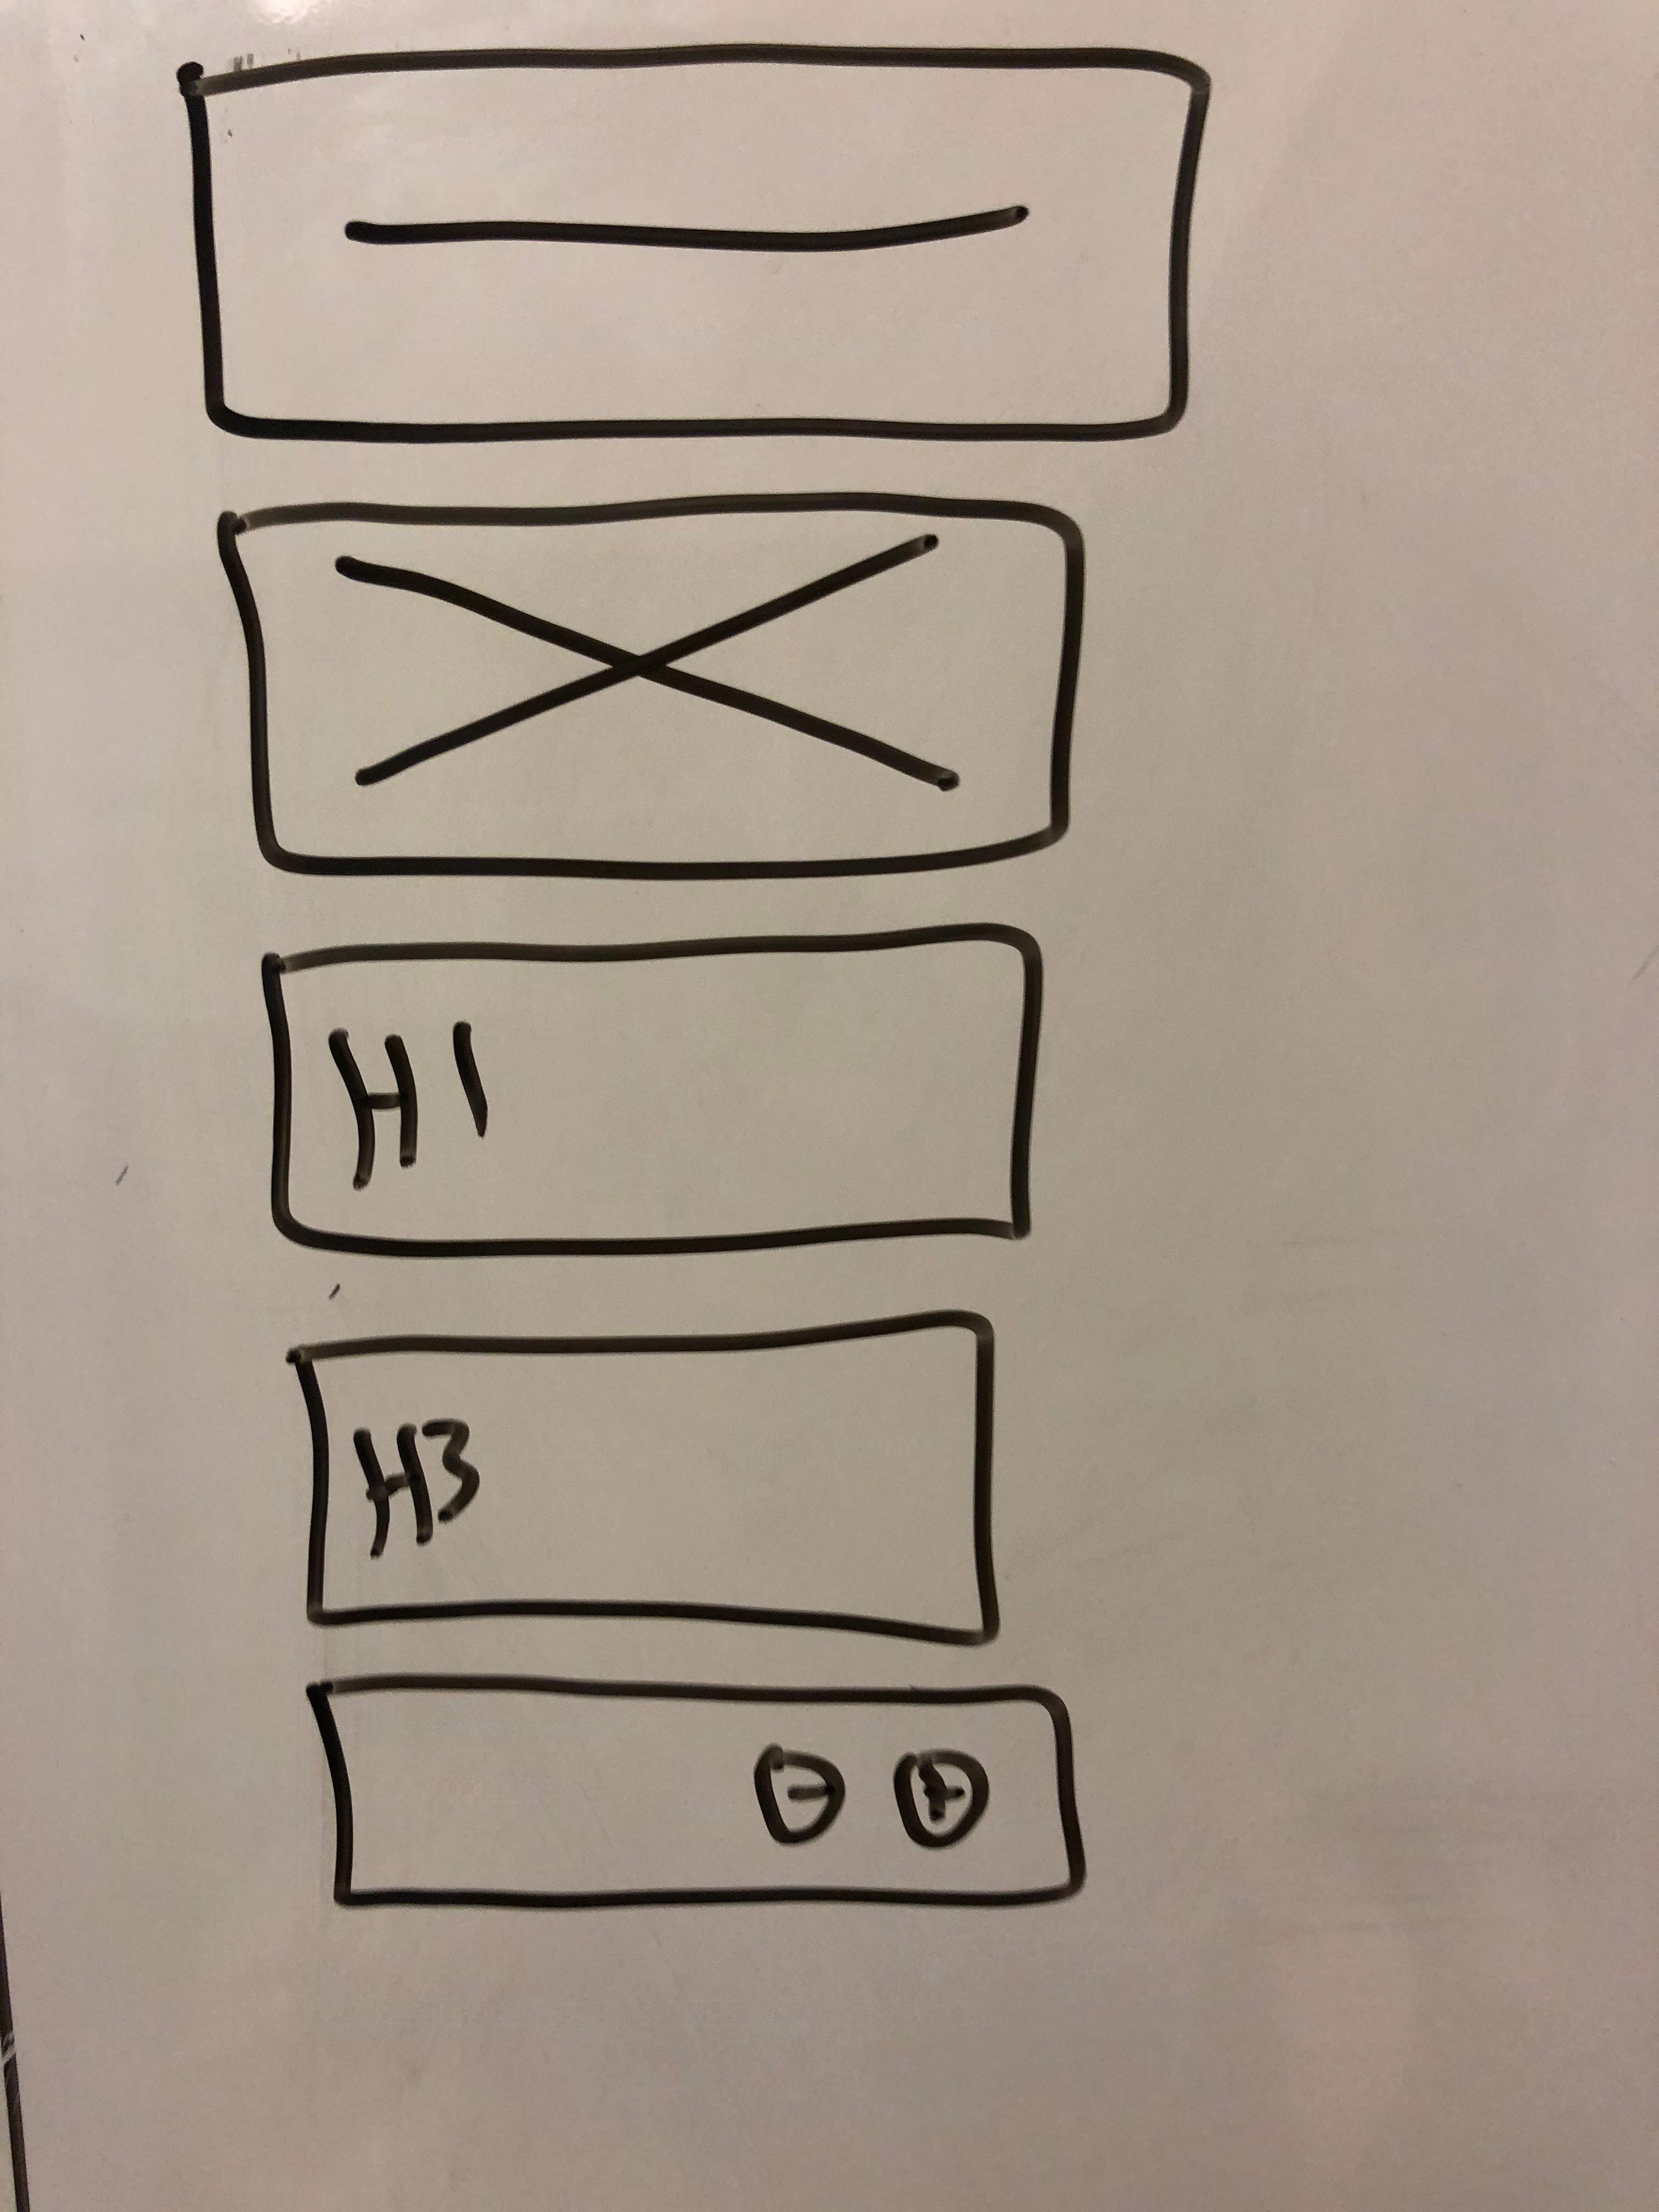 H1
H3
- +